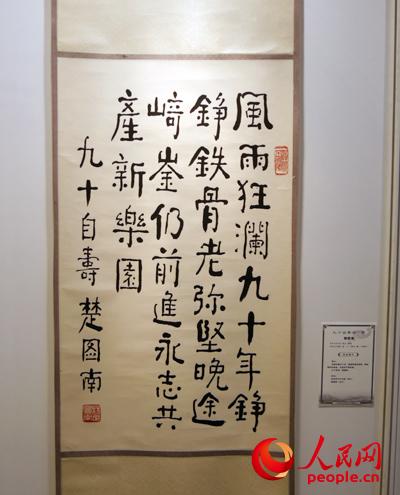 風雨狂瀾九十年錚
錚鉄骨老弥堅晚途
崎崟仍前進永志共
產新樂園
九十自壽楚图南
人民网
people.cn